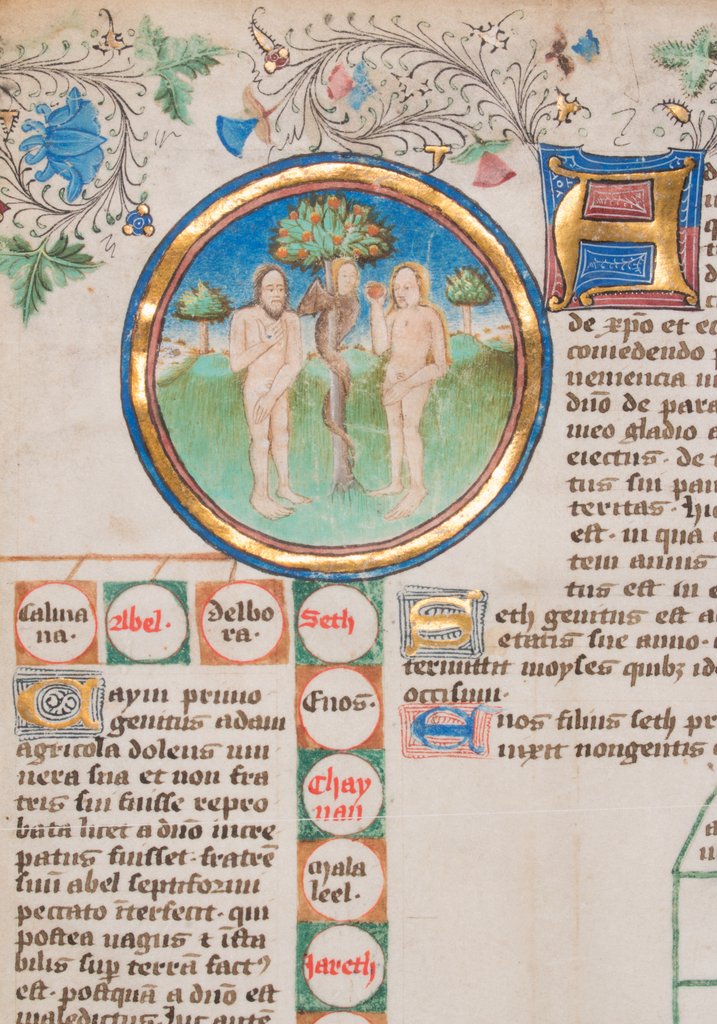 A
de xpo et e
comedendo
uemencia
dno de para
meo gladio a
eiectus · de
tus sui pa
teritas · hic
est · in qua
tem annis
tus est in
Calma
na ·
Abel ·
Delbo
ra ·
Seth
Enos ·
Chay
nan
Mala
leel ·
Jareth
Caym primo
genitus adam
agricola dolens mu
nera sua et non fra
tris sui fuisse repro
bata licet a dno incre
patus fuisset · fratrē
suū abel septiformi
peccato īterfecit · qui
postea uagus ⁊ īsta
bilis sup terrā factꝰ
est · postquā a dno est
maledictus · huc autē
Seth genitus est a
etatis sue anno ·
termittit moyses quibꝫ id
occisum ·
Enos filius seth pr
uixit nongentis